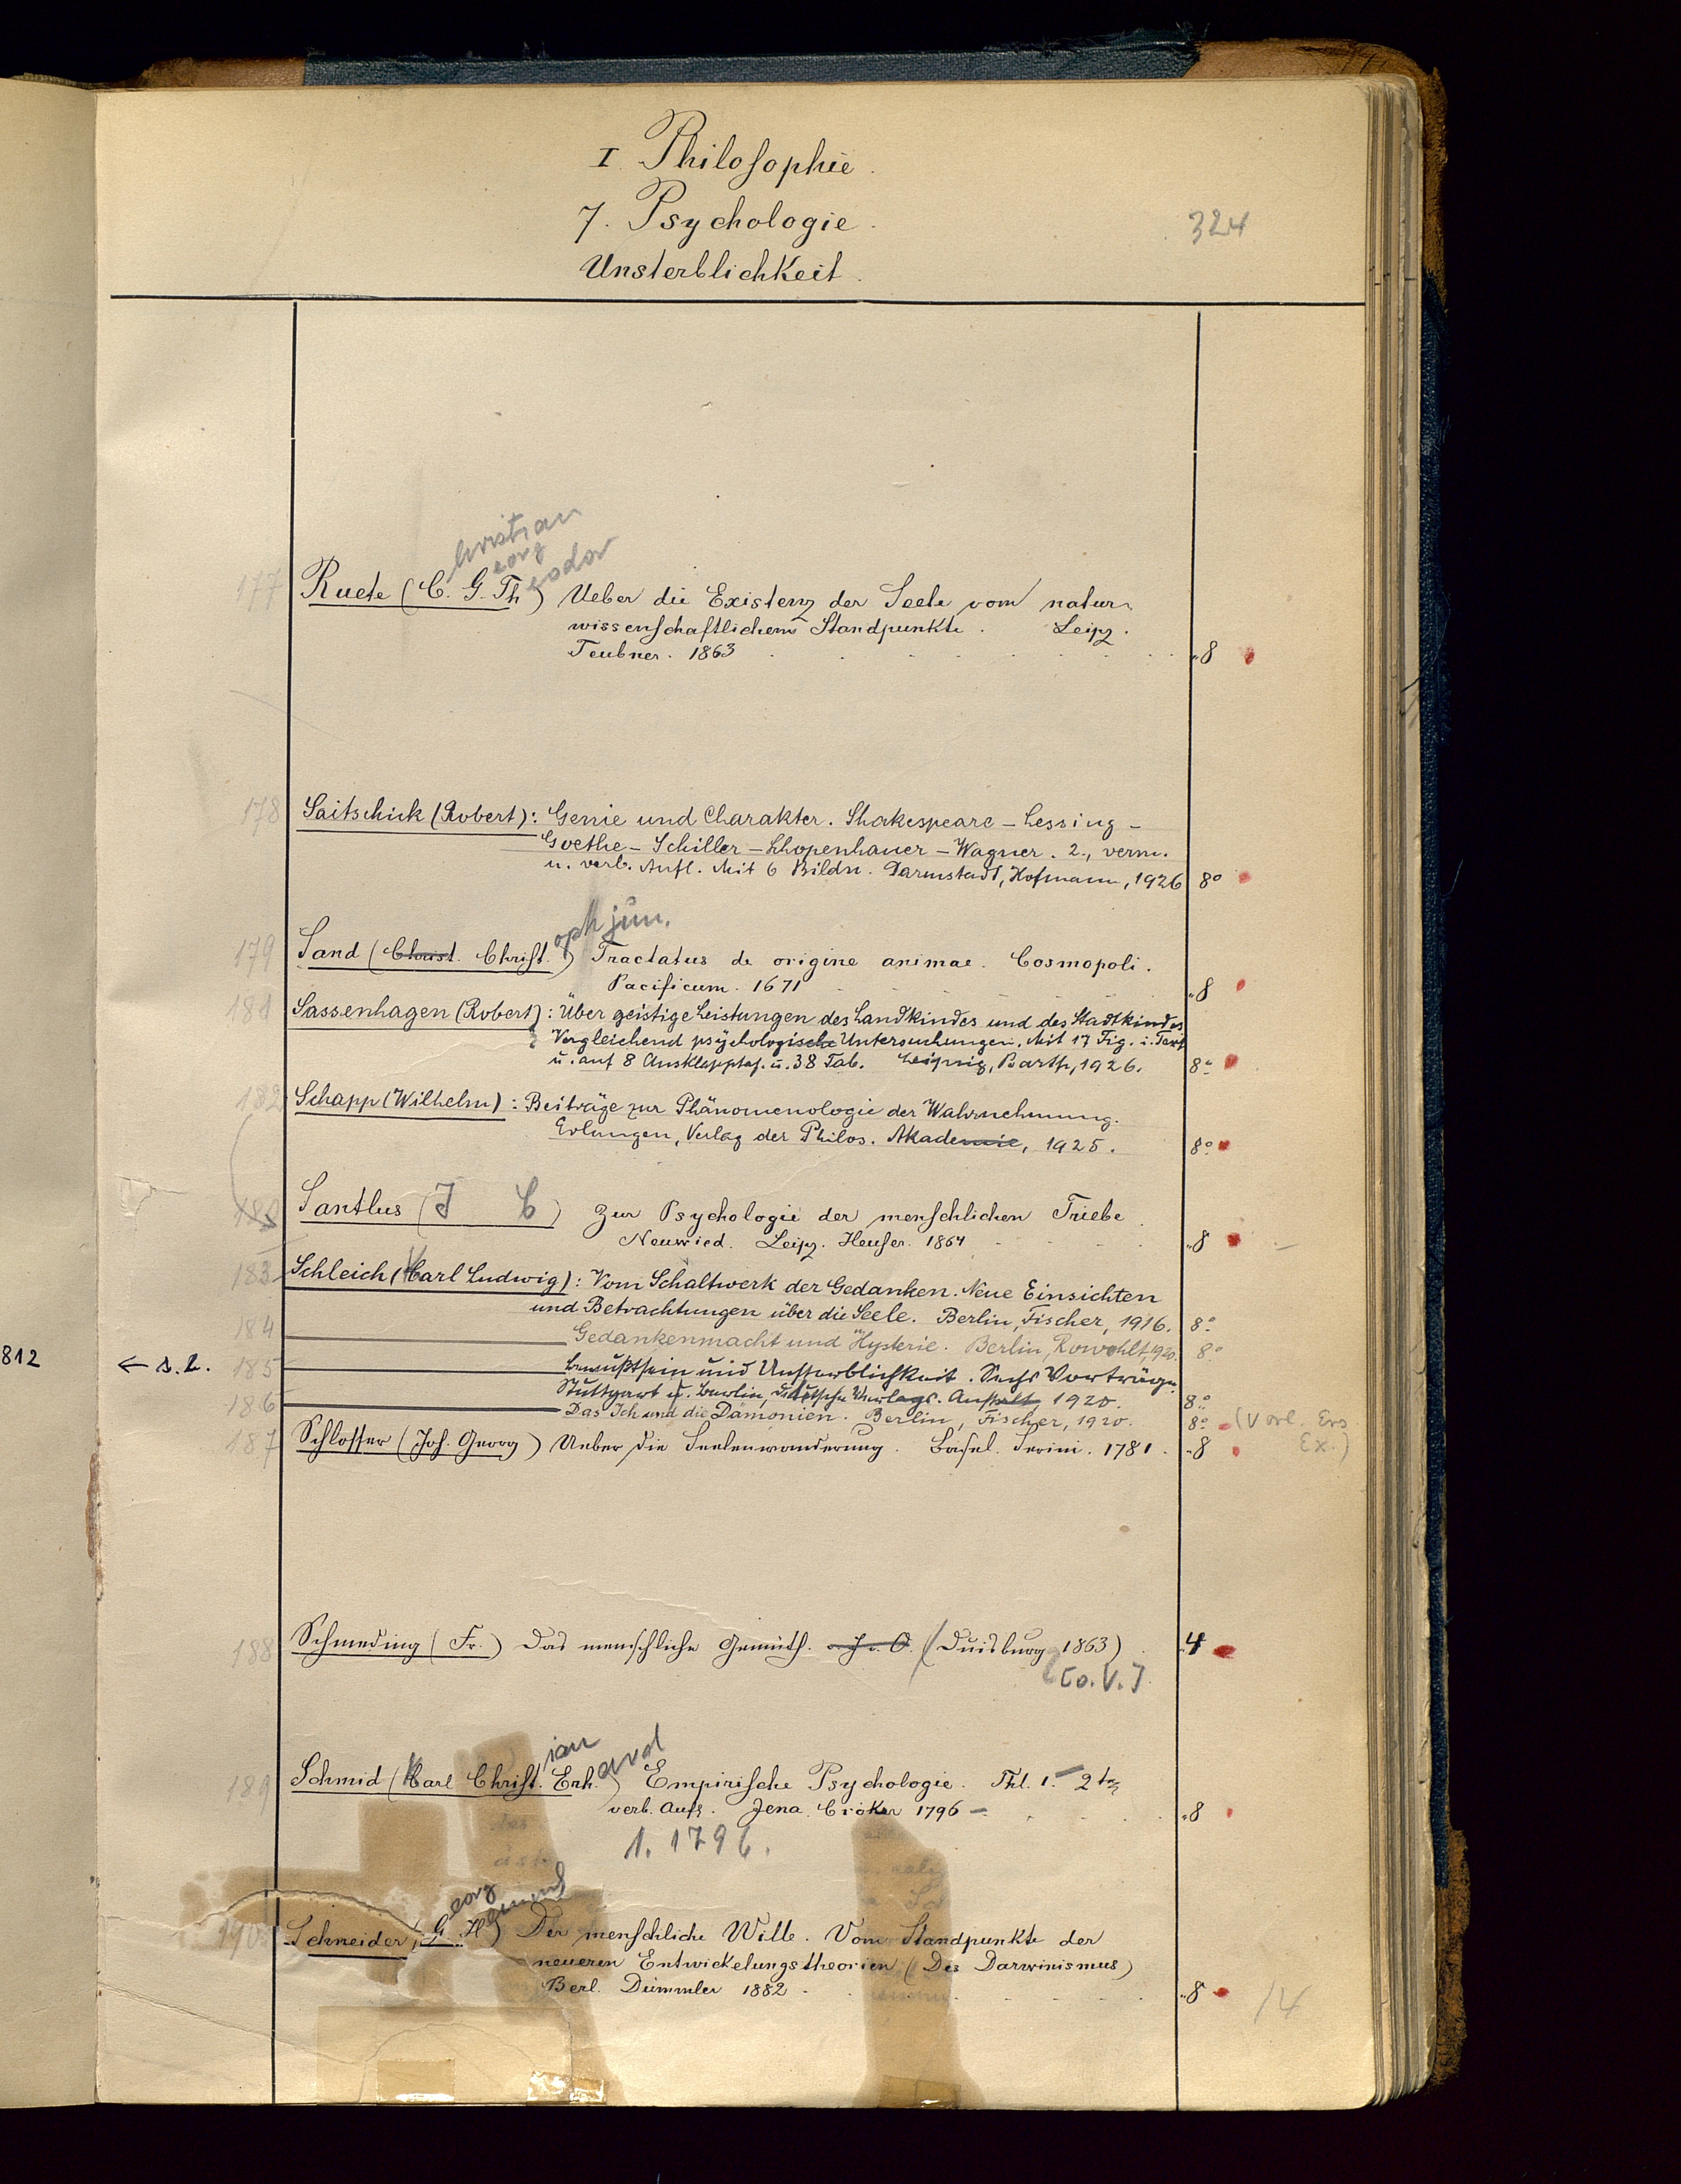 I. Philosophie.
7. Psychologie.
324
Unsterblichkeit.
hristian
eorg
eodor
177 Ruete (C. G. Th) Ueber die Existenz der Seele vom natur-
wissenschaftlichem Standpunkte. Leipz.
Teubner. 1863 8
178 Saitschick (Robert): Genie und Charakter. Shakespeare – Lessing –
Goethe – Schiller – Schopenhauer – Wagner. 2., verm.
u. verb. Aufl. Mit 6 Bildn. Darmstadt, Hofmann, 1926 8°
oph jun.
179 Sand (Christ. Christ.) Tractatus de origine animae. Cosmopoli.
Pacificum. 1671 8
181 Sassenhagen (Robert): Über geistige Leistungen des Landkindes und des Stadtkindes
Vergleichend psychologische Untersuchungen. Mit 17 Fig. i. Text
u. auf 8 Ausklapptaf. u. 38 Tab. Leipzig, Barth, 1926. 8°
182 Schapp (Wilhelm): Beiträge zur Phänomenologie der Wahrnehmung.
Erlangen, Verlag der Philos. Akademie, 1925. 8°
Santlus (J C) Zur Psychologie der menschlichen Triebe.
Neuwied. Leipz. Heuser. 1864 8
183 Schleich (Karl Ludwig): Vom Schaltwerk der Gedanken. Neue Einsichten
und Betrachtungen über die Seele. Berlin, Fischer, 1916. 8°
184 Gedankenmacht und Hysterie. Berlin, Rowohlt, 1920. 8°
812 ← s. l. 185 Bewußtsein und Unsterblichkeit. Sechs Vorträge.
Stuttgart u. Berlin, Deutsche Verlags-Anstalt, 1920. 8°
186 Das Ich und die Dämonien. Berlin, Fischer, 1920. 8° (Vorl. Ers.
Ex.)
187 Schlosser (Joh. Georg) Ueber die Seelenwanderung. Basel. Serini. 1781. 8
188 Schmeding (Fr.) Das menschliche Gemüth. J. O. (Duisburg 1863) 4
[o. V.]
ian
ard
189 Schmid (Karl Christ. Erh.) Empirische Psychologie. Thl. 1. – 2te
verb. Aufl. Jena. Cröker 1796 – 8
1. 1796.
eorg
190 Schneider, (G. H) Der menschliche Wille. Vom Standpunkte der
neueren Entwickelungstheorien (Des Darwinismus)
Berl. Dümmler 1882 8
14